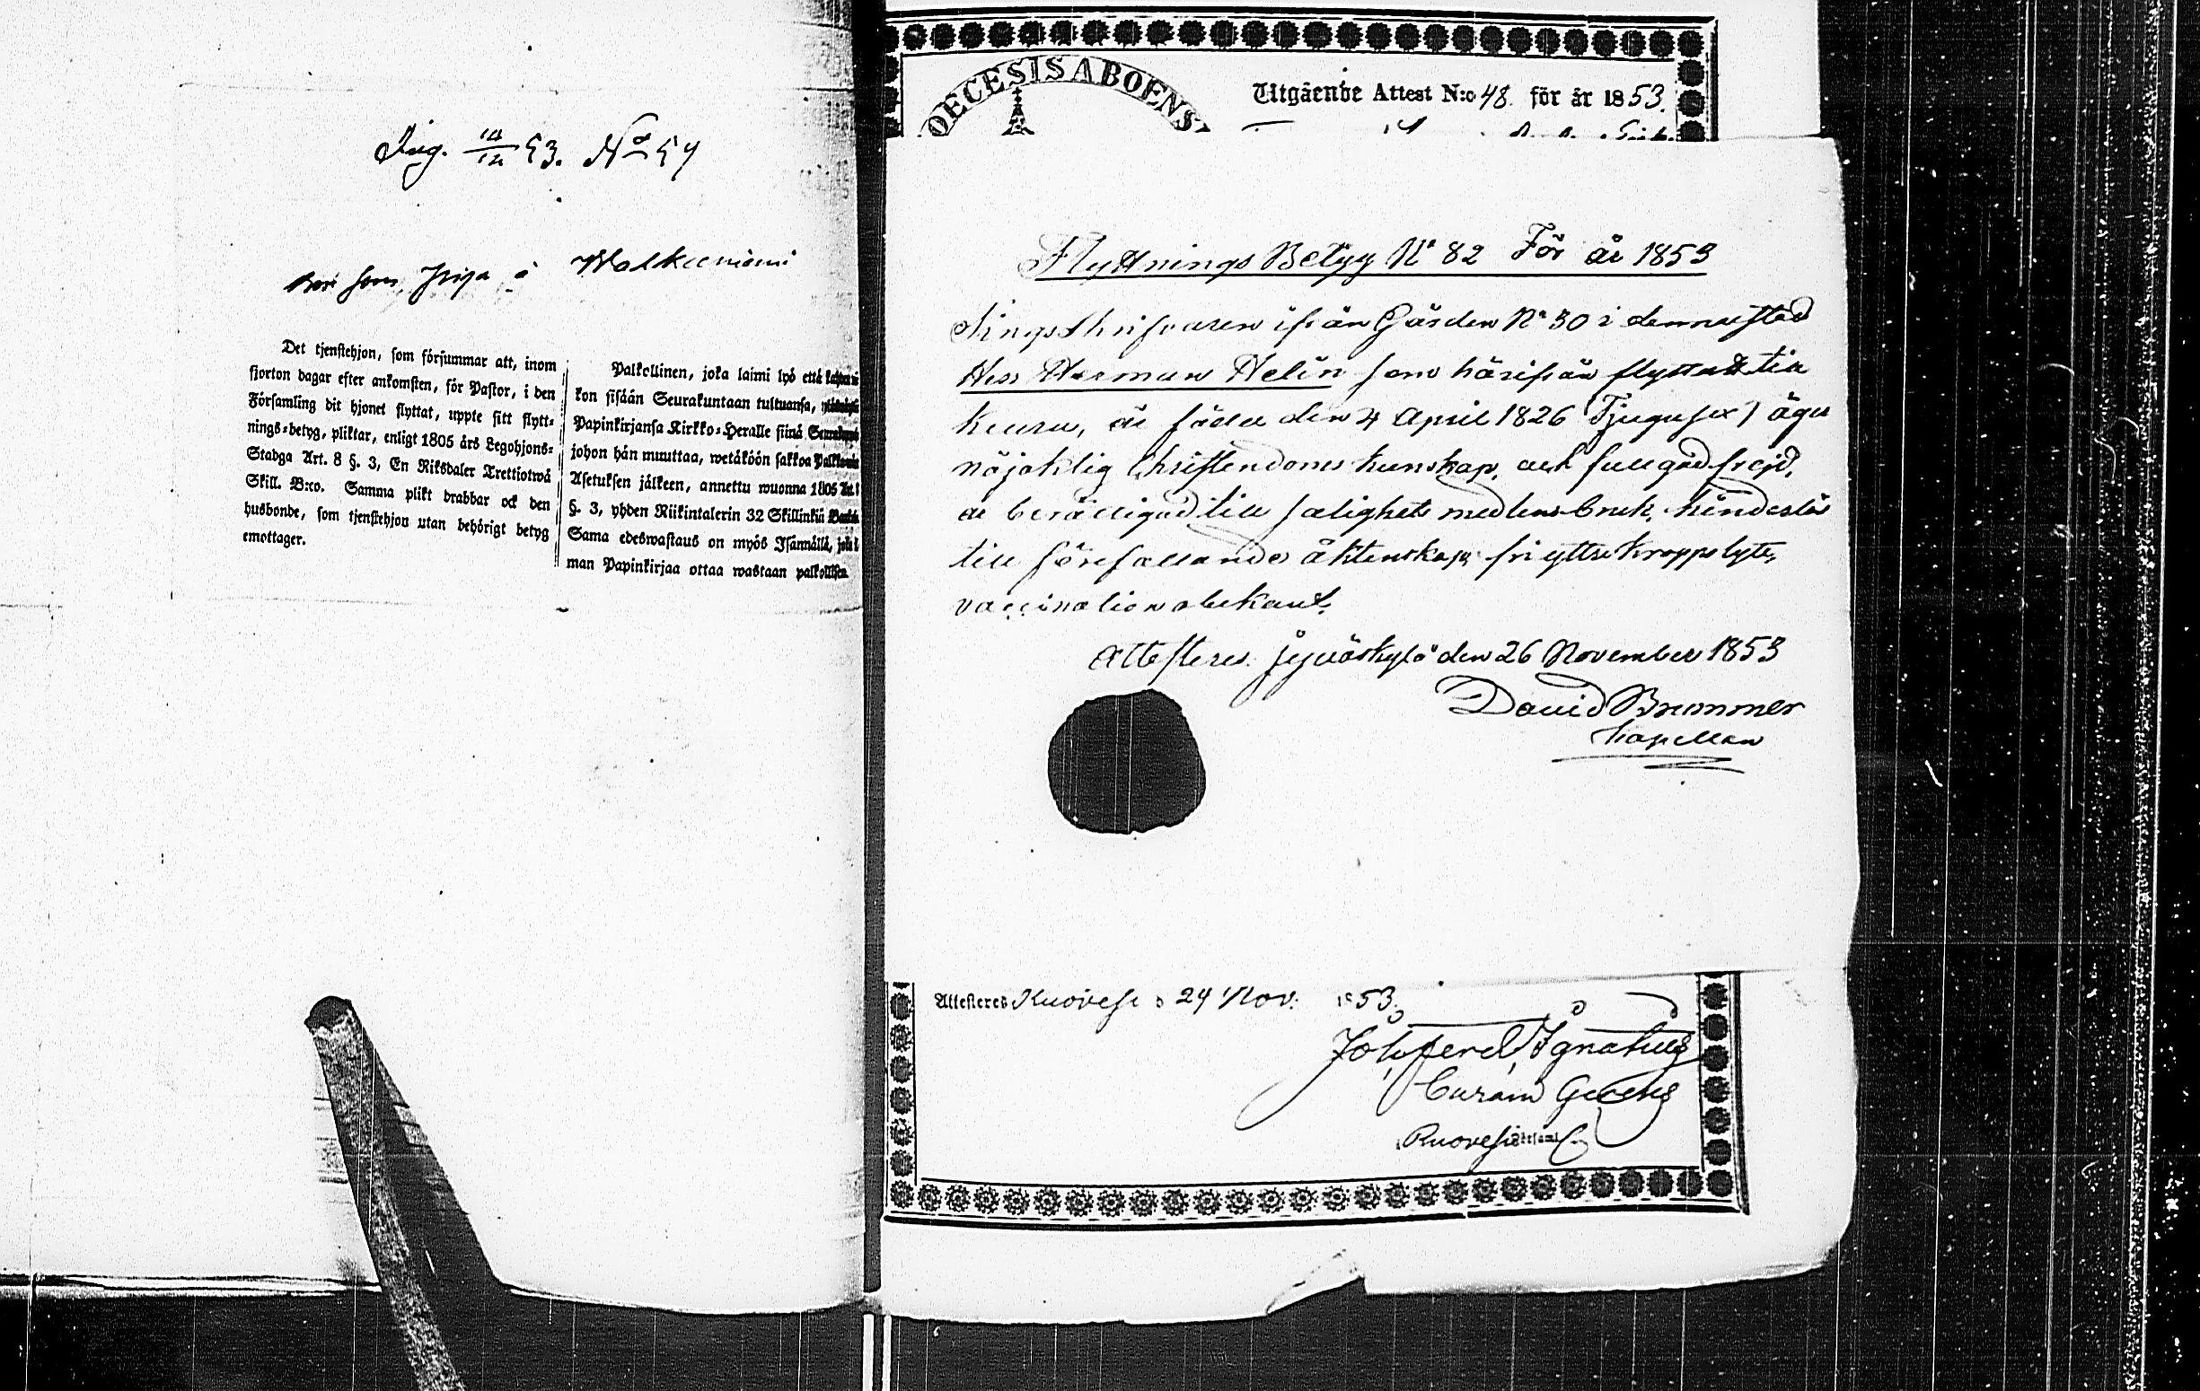 Ing. 14/12 53. No 54
som Piga å Walkeeniemi
Det tjenstehjon, som försummar att, inom
fjorton dagar efter ankomsten, för Pastor, i den
Församling dit hjonet flyttat, uppte sitt flytt-
nings-betyg, pliktar, enligt 1805 års Legohjons-
Stadga Art. 8 §. 3, En Riksdaler Trettiotwå
Skill. B:co. Samma plikt drabbar ock den
husbonde, som tjenstehjon utan behörigt betyg
emottager.
Palkollinen, joka laimi lyö että
kon sisään Seurakuntaan tultuansa,
Papinkirjansa Kirkko-Heralle siinä
johon hän muuttaa, wetäköön sakkoa
Asetuksen jälkeen, annettu wuonna 1805
§. 3, yhden Riikintalerin 32 Skillinkiä
Sama edeswastaus on myös Isännällä,
man Papinkirjaa ottaa wastaan
OECESIS ABOENS
Utgående Attest N:o 48. för år 1853.
Flyttnings Betyg No 82 För år 1853
Tingsskrifvaren ifrån Gården No 30 i denna stad
Herr Herman Helin som härifrån flyttar till
Keuru, är född den 4 April 1826 Tjugusex) äger
nöjaktig Christendoms kunskap, och full god frejd,
är berättigad till salighets medlens bruk, hinderslös
till förefallande äktenskap, fri yttre kroppslyte,
vaccination obekant.
Attesteres. Jyväskylä den 26 November 1853
David Brummer
Kapellan
Attesteres Ruovesi d 24 Nov. 1853.
Joh. Ferd. Ignatius
Curam Gerens
Ruovesi